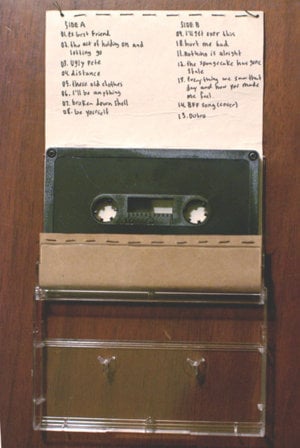 SIDE A
01. Ex best friend
02. the art of holding on and
letting go
03. Ugly Pete
04. distance
05. these old clothes
06. I'll be anything
07. broken down shell
08. be yourself
SIDE B
09. I'll get over this
10. hurt me bad
11. Nothing is alright
12. the spongecake has gone
stale
13. Everything we saw that
day and how you made
me feel.
14. BFF song (cover)
15. Outro